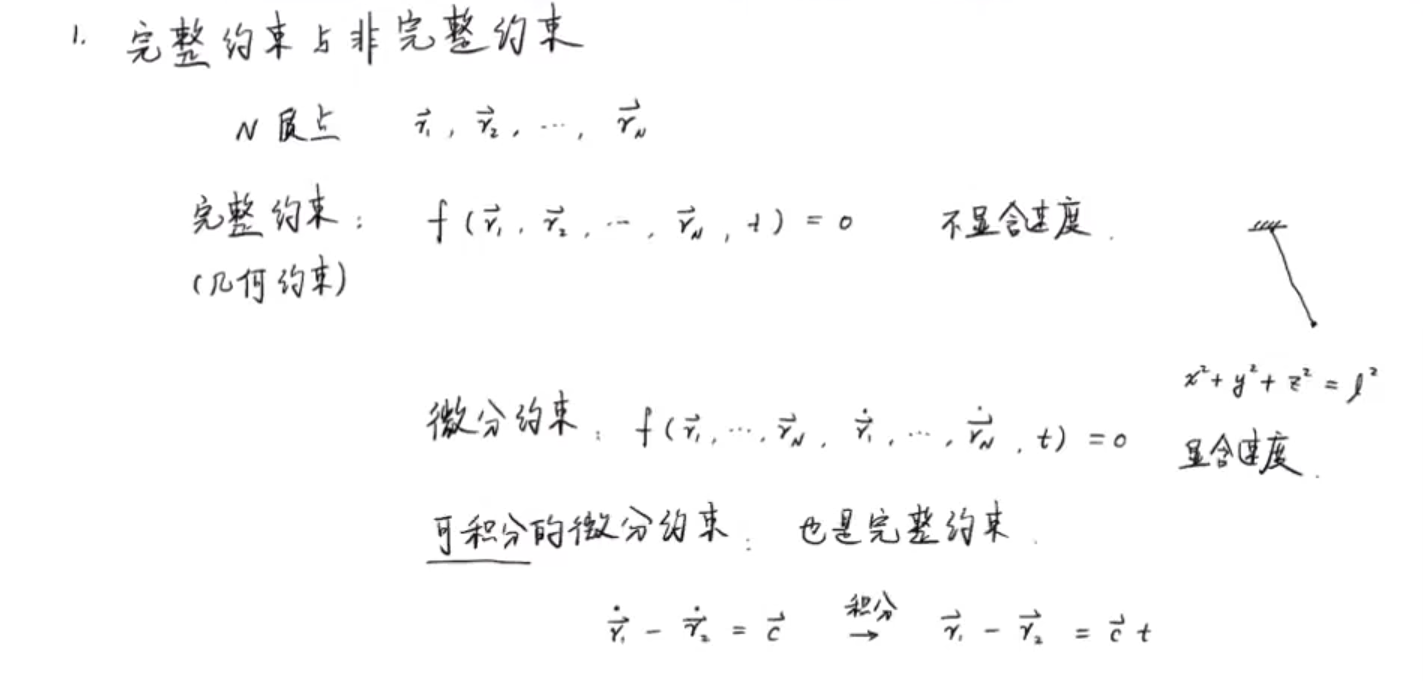 1. 完整约束与非完整约束
N 质点 r⃗₁, r⃗₂, ⋯, r⃗_N
完整约束: f(r⃗₁, r⃗₂, ⋯, r⃗_N, t) = 0 不显含速度.
(几何约束)
x² + y² + z² = l²
微分约束: f(r⃗₁, ⋯, r⃗_N, ṙ⃗₁, ⋯, ṙ⃗_N, t) = 0 显含速度.
可积分的微分约束: 也是完整约束.
ṙ⃗₁ - ṙ⃗₂ = c⃗ 积分→ r⃗₁ - r⃗₂ = c⃗ t